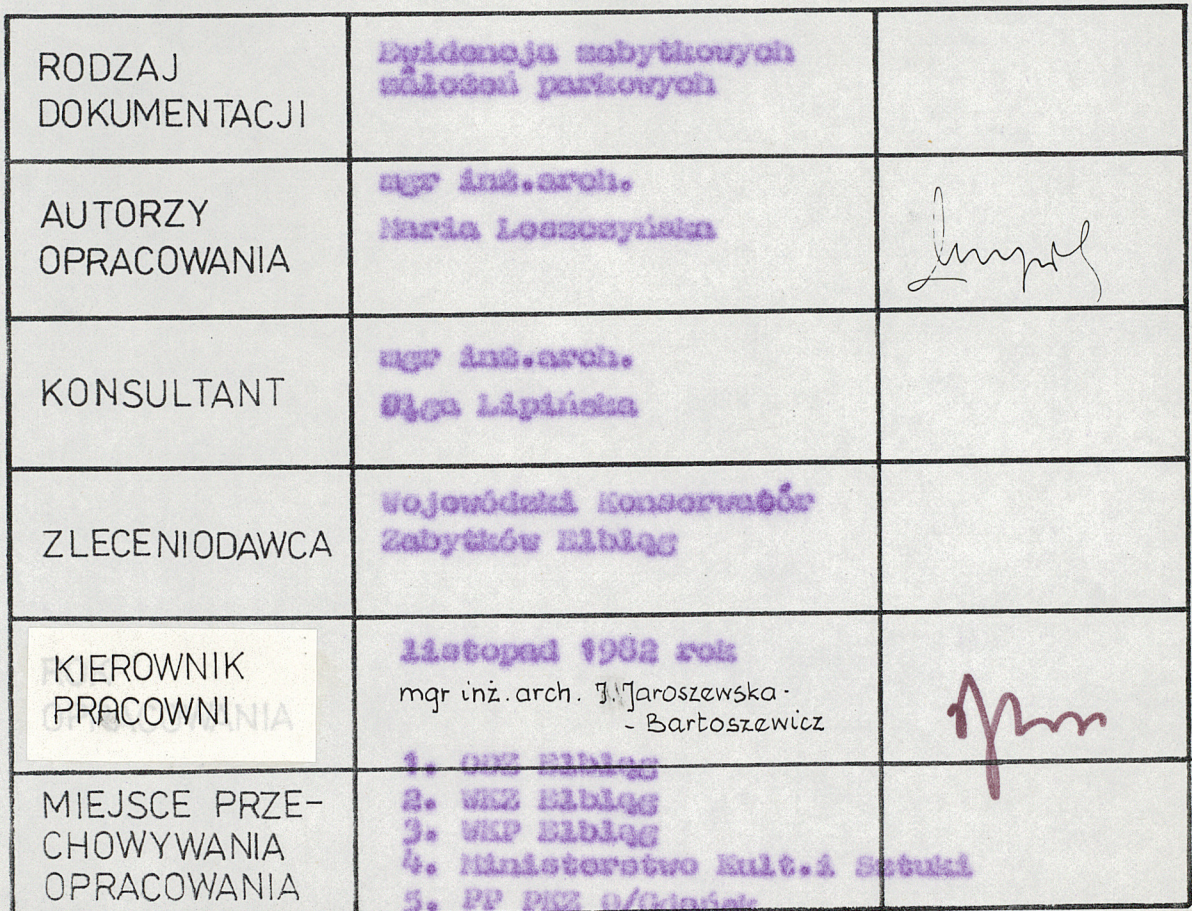 RODZAJ
DOKUMENTACJI
Ewidencja zabytkowych
założeń parkowych
AUTORZY
OPRACOWANIA
mgr inż.arch.
Maria Leszczyńska
KONSULTANT
mgr inż.arch.
Olga Lipińska
ZLECENIODAWCA
Wojewódzki Konserwatór
Zabytków Elbląg
KIEROWNIK
PRACOWNI
listopad 1982 rok
mgr inż. arch. Jaroszewska-
- Bartoszewicz
MIEJSCE PRZE-
CHOWYWANIA
OPRACOWANIA
1. ODZ Elbląg
2. WKZ Elbląg
3. WKP Elbląg
4. Ministerstwo Kult.i Sztuki
5. PP PKZ O/Gdańsk